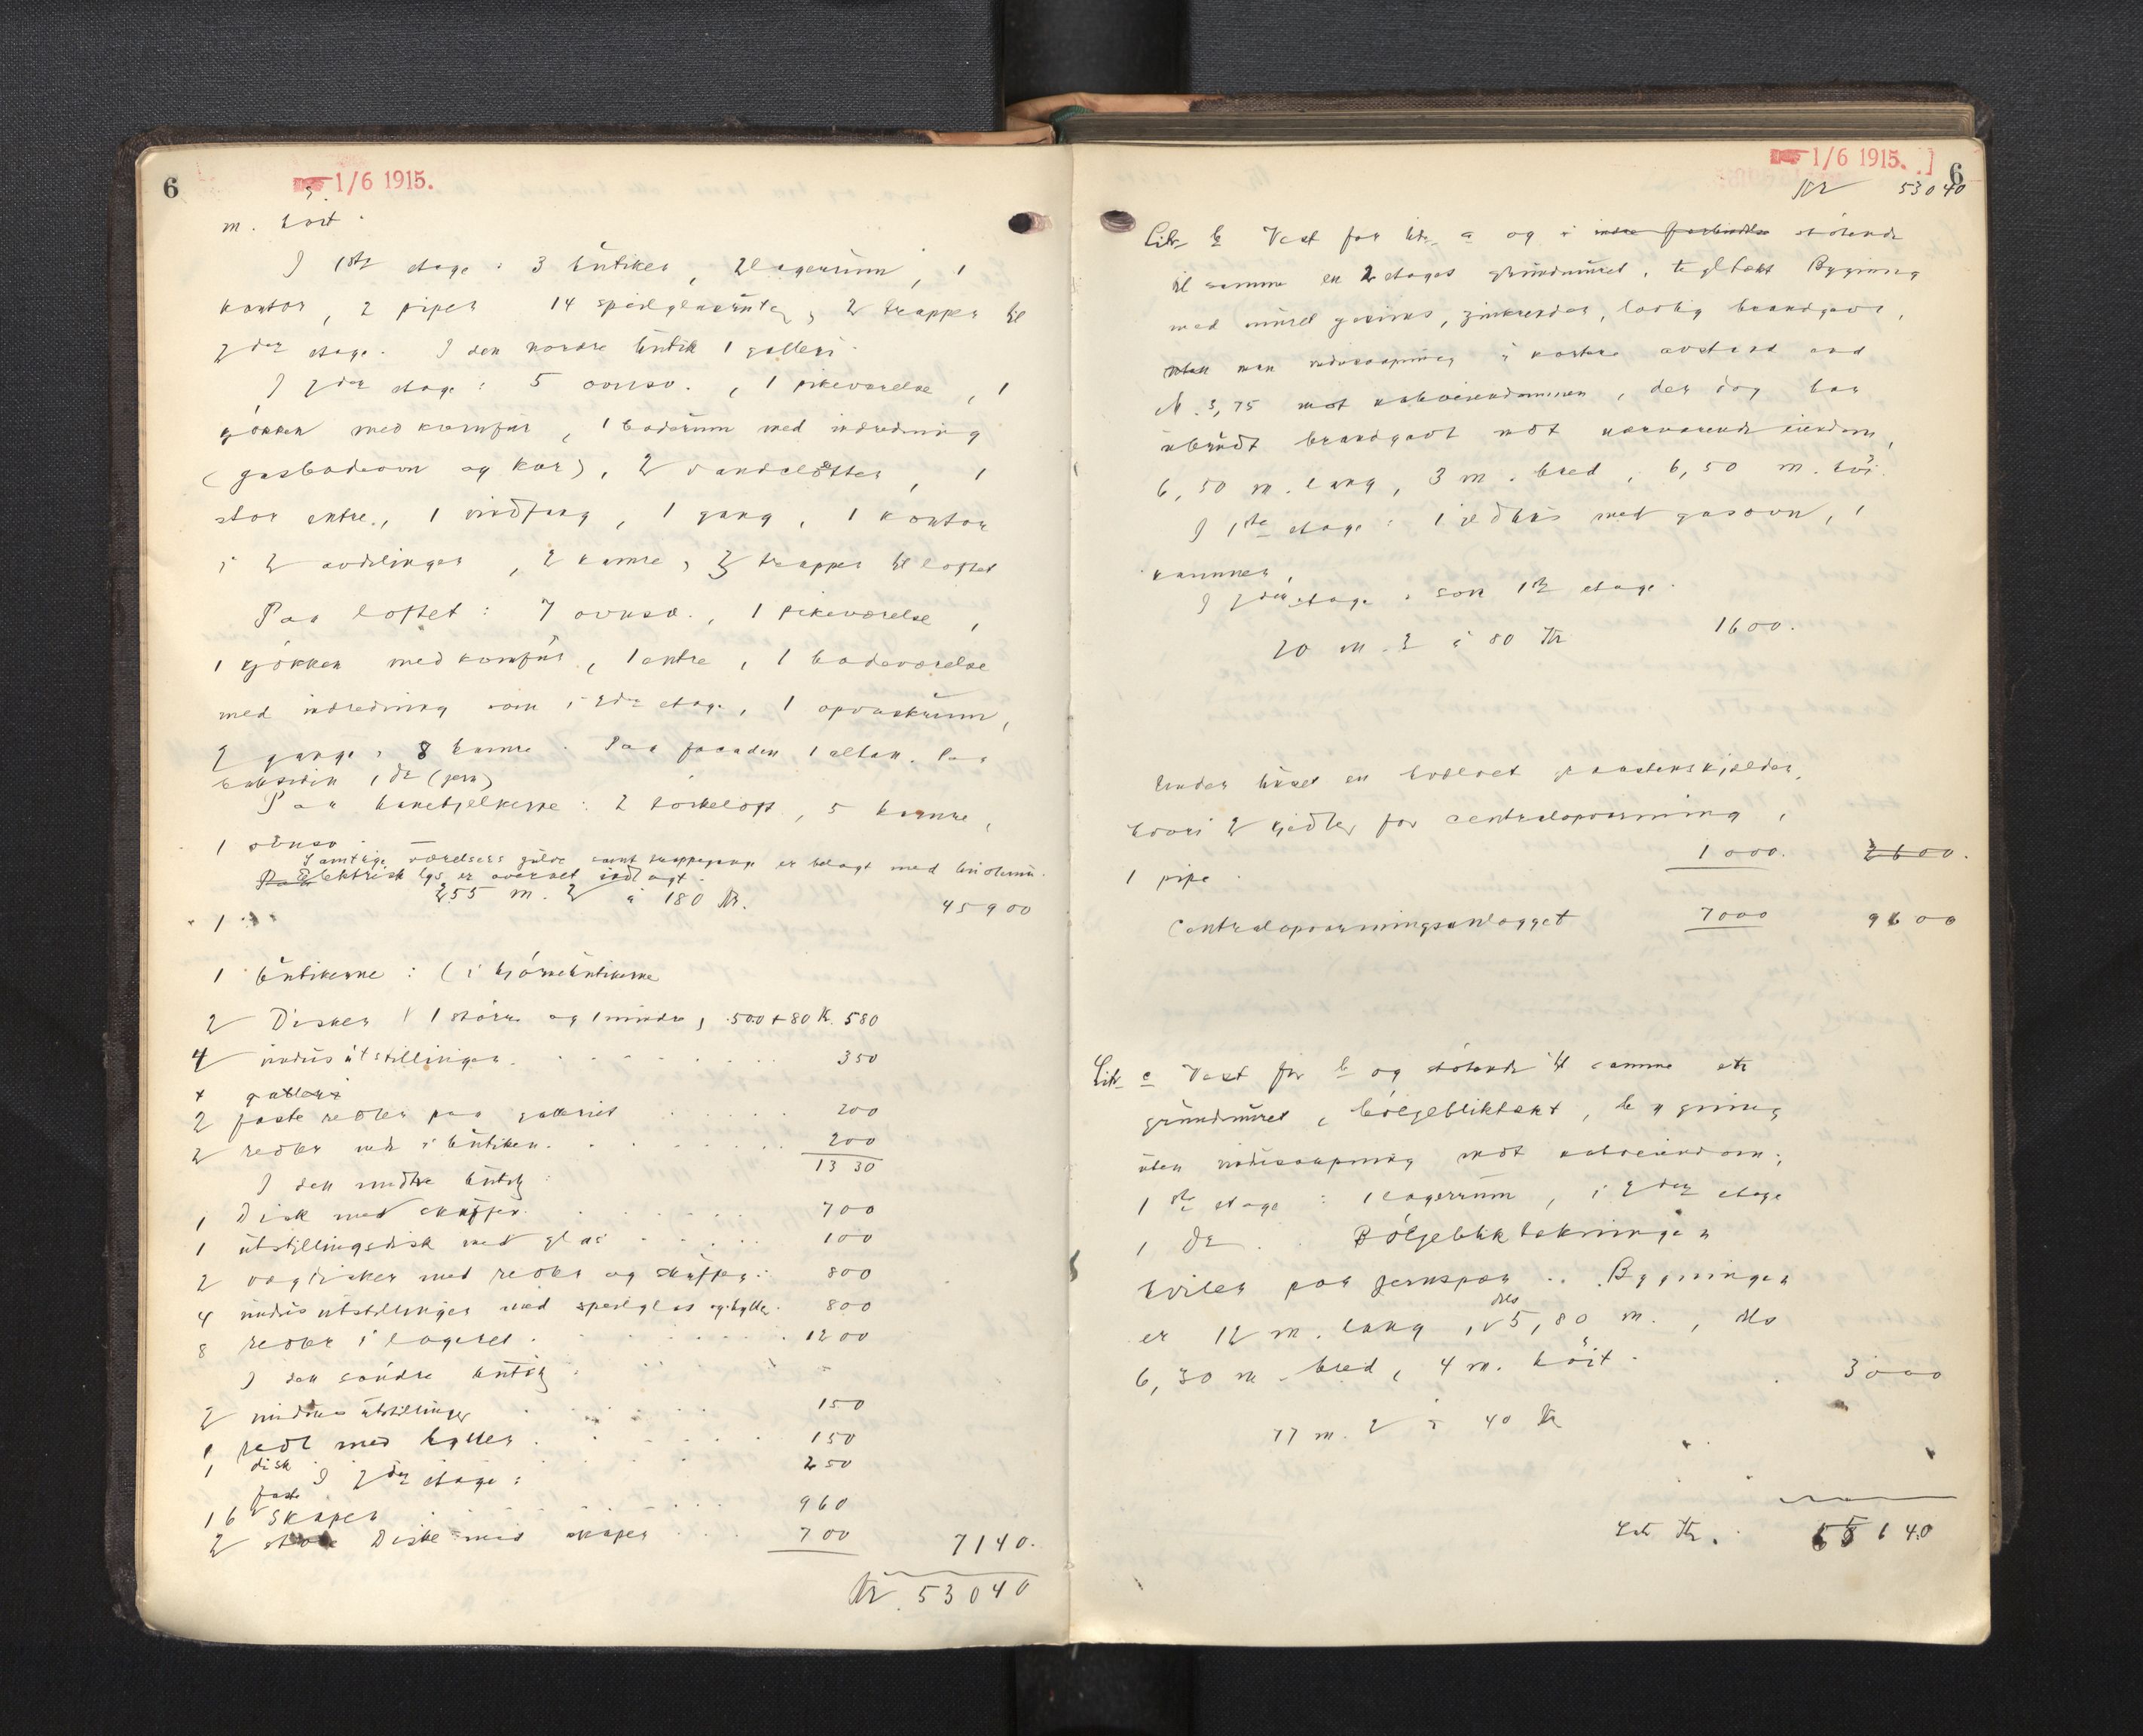 6
1/6 1915.
m. høit.
I 1ste etage: 3 butiker, 2 lagerrum, 1
kontor, 2 piper 14 speilglasruter, 2 trapper til
2den etage. I den nordre butik 1 galleri.
I 2den etage: 5 ovnsv., 1 pikeværelse, 1
kjøkken med komfur, 1 baderum med indredning
(gasbadeovn og kar), 2 vandclosetter, 1
stor entre, 1 vindfang, 1 gang, 1 kontor
i 2 avdelinger, 2 kamre, 2 trapper til loftet
Paa loftet: 7 ovnsv., 1 pikeværelse,
1 kjøkken med komfur, 1 entre, 1 badeværelse
med indredning som i 2den etage, 1 opvaskrum,
2 gange, 8 kamre. Paa facaden 1 altan. Paa
baksiden 1 do (jern)
Paa hanebjelkerne: 2 tørkeloft, 5 kamre,
1 ovnsv.
Samtlige værelsers gulve samt trappegang er belagt med linoleum.
Elektrisk lys er overalt indlagt.
255 m. 2 à 180 Kr. 45900
1
I butikerne: (i hjørnebutikerne
2 Disker (1 større og 1 mindre) 500+80 Kr. 580
4 vindusutstillinger. 350
galleri
2 faste reoler paa galleriet 200
2 reoler nede i butiken. 200
1330
I den midtre butik:
1 Disk med skuffer. 700
1 utstillingsdisk med glas 100
2 vegdisker med reoler og skuffer: 800
4 vindusutstillinger med speilglas og hylle. 800
8 reoler i lageret. 1200
I den søndre butik:
2 vindus utstillinger 150
1 reol med hyller. 150
1 disk 250
I 2den etage:
16 faste skaper 960
2 store Diske med skaper 700 7140.
Kr. 53040
1/6 1915.
6
Kr 53040
Litr b Vest for litr a og i indre forbindelse støtende
til samme en 2 etages grundmuret, tegltækt Bygning
med muret gesims, zinkrender, lovlig brandgavl,
uten men vindusaapning i kortere avstand end
M. 3,75 mot naboeiendommen, der dog har
ubrudt brandgavl mot nærværende eiendom,
6,50 m. lang, 3 m. bred, 6,50 m. høi.
I 1ste etage: 1 ildhus med gasovn, 1
kammer,
I 2den etage: som 1ste etage.
20 m. 2 à 80 Kr 1600.
Under huset en hvælvet graastenskjelder,
hvori 2 kjedler for centralopvarming,
1 pipe. 1000. 2600.
Centralopvarmingsanlægget 7000 9600
Litr c Vest for b og støtende til samme en
grundmuret, bølgebliktækt, bygning
uten vindusaapning mot naboeiendom;
1ste etage: 1 lagerrum, i 2den etage
1 do. Bølgebliktækningen
hviler paa jernspær. Bygningen
er 12 m. lang, dels 5,80 m., dels
6,30 m. bred, 4 m. høit. 3000
77 m. 2 à 40 Kr
Kr. 65640